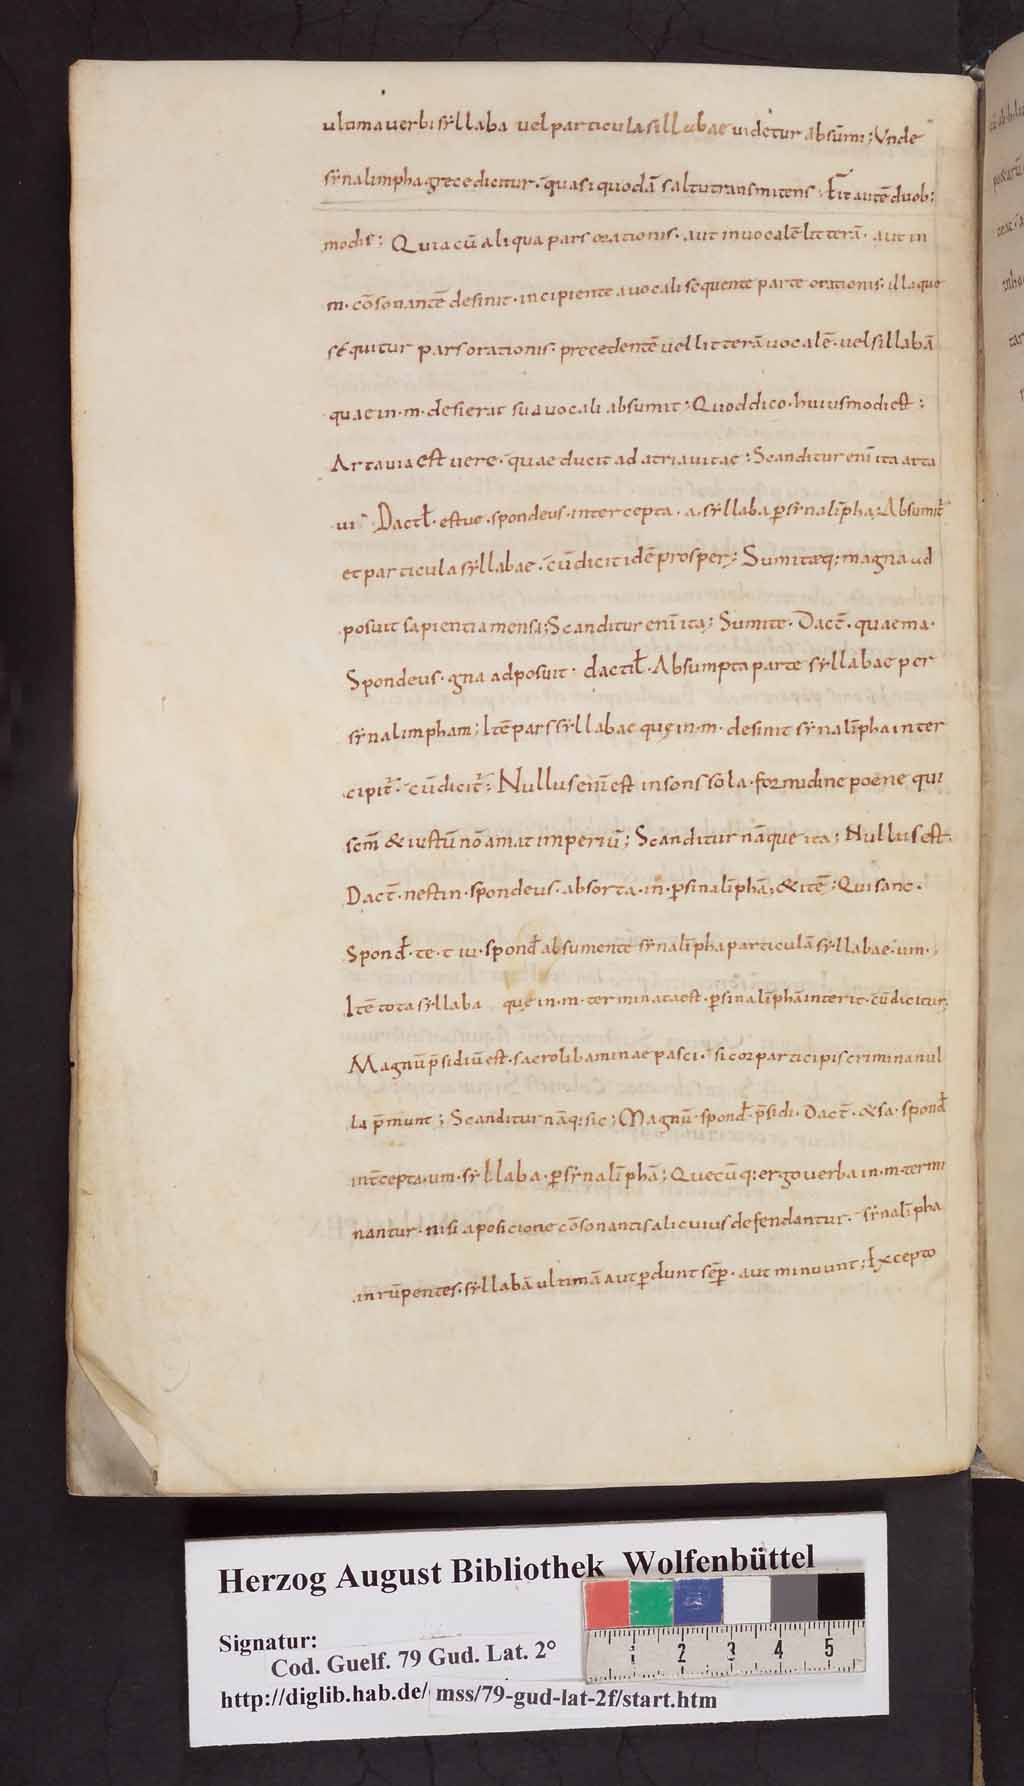 ultima uerbi syllaba uel particula sillabae uidetur absūmi; Vnde
synalimpha grece dicitur. quasi quodā saltu transmitens; Fit autē duob;
modis; Quia cū aliqua pars orationis. aut in uocalē litterā. aut in
m. cōsonantē desinit. incipiente a uocali sequente parte orationis. illa que
sequitur pars orationis. precedentē uel litterā uocalē. uel sillabā
quae in .m. desierat sua uocali absumit; Quod dico. huius modi est;
Arta uia est uere. quae ducit ad atria uitae; Scanditur eni̅ ita arta
ui. Dactł. estue. spondeus. intercepta .a. syllaba p̲ synali̅pha; Absumit̃
et particula syllabae. cū dicit idē prosper; Sumite q; magna ad
posuit sapientia mensa; Scanditur eni̅ ita; Sumite. Dact̄. quae ma.
Spondeus. gna adposuit. dactił. Absumpta parte syllabae per
synalimpham; Itē pars syllabae quę in .m. desinit synali̅pha inter
cipit̃. cū dicit̃; Nullus eni̅ est insons sola formidine poene qui
scm̄ & iustū nō amat imperiū; Scanditur nāque ita; Nullus est.
Dact̄. nestin. spondeus. absorta .in. p̲ sinali̅phā; & itē; Qui sanc.
Spond̄. te. t iu. spond̄ absumente synali̅pha particulā syllabae .um.;
Itē tota syllaba que in .m. terminata est. p̲ sinali̅phā interit. cū dicitur;
Magnū p̄sidiū est. sacro libamina e pasci. si cor participis crimina nul
la p̄munt; Scanditur nāq; sic; Magnū. spond̄. p̄sidi. Dact̄. & sa. spond̄
int̄cepta .um. syllaba. p̲ synali̅phā; Quecūq; ergo uerba in .m. termi
nantur. nisi a posicione cōsonantis alicuius defendantur. synali̅pha
inrūpentes. syllabā ultimā aut p̲dunt sēp̲. aut minuunt; Excepto
Herzog August Bibliothek Wolfenbüttel
Signatur:
Cod. Guelf. 79 Gud. Lat. 2°
http://diglib.hab.de/ mss/79-gud-lat-2f/start.htm
1 2 3 4 5